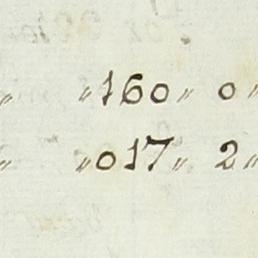 " "160" 0"
" "017" 2"